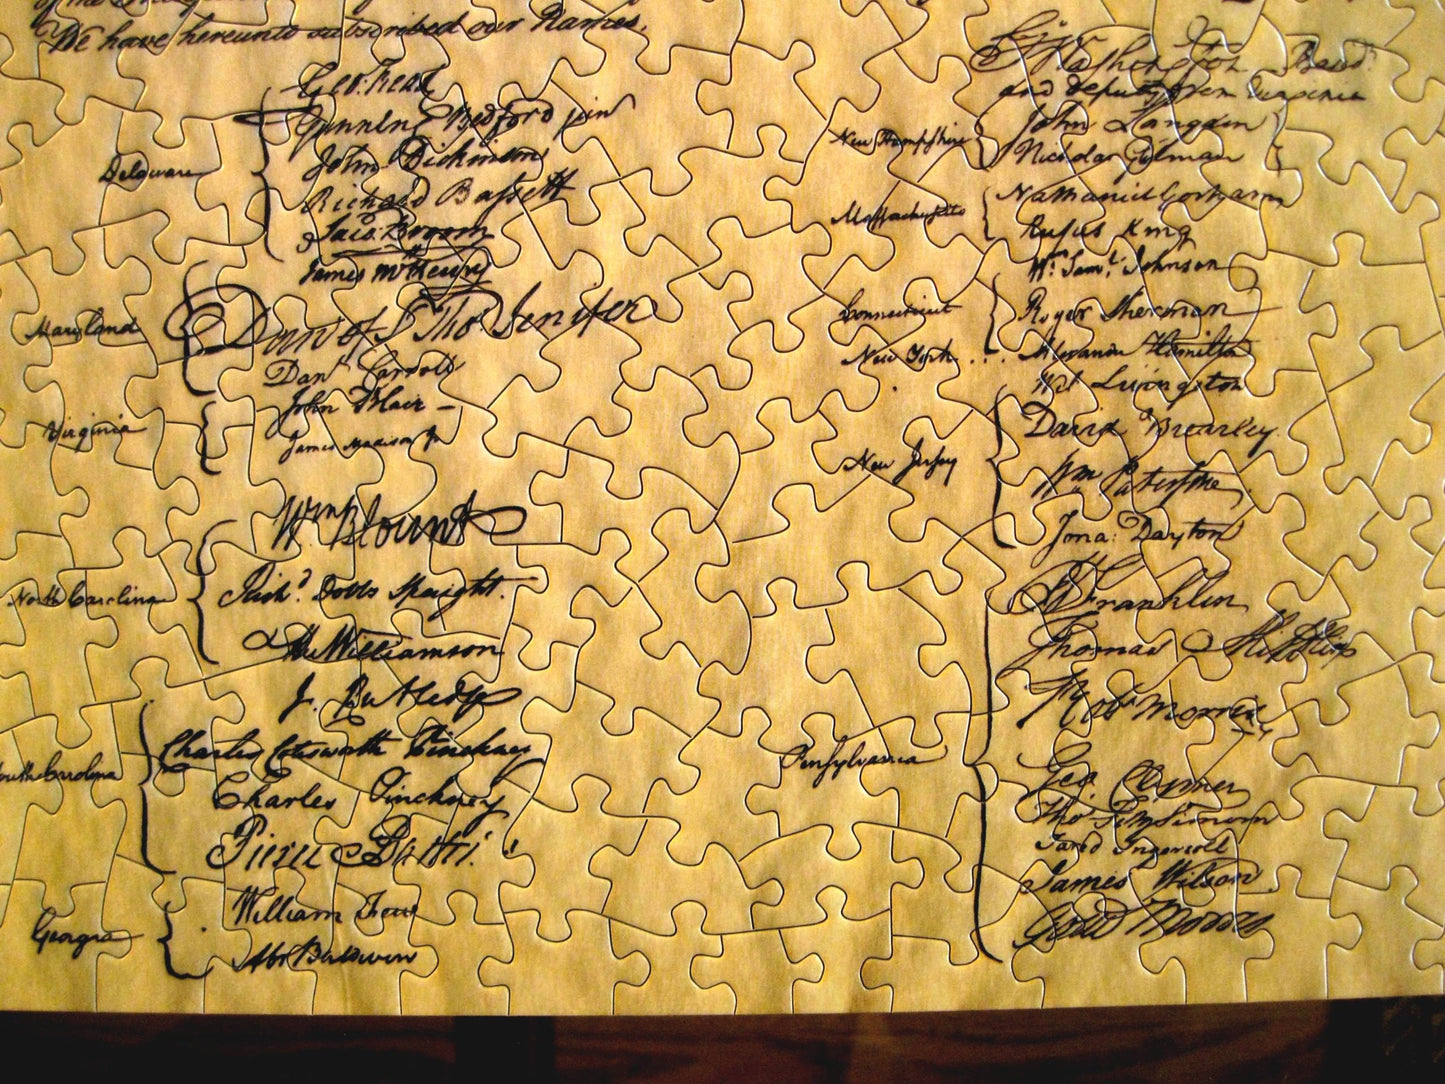 We have hereunto subscribed our Names,
Delaware
Geo: Read
Gunning Bedford jun
John Dickinson
Richard Bassett
Jaco: Broom
Maryland
James McHenry
Dan of St Thos Jenifer
Danl Carroll
Virginia
John Blair –
James Madison Jr
North Carolina
Wm Blount
Richd Dobbs Spaight.
Hu Williamson
South Carolina
J. Rutledge
Charles Cotesworth Pinckney
Charles Pinckney
Pierce Butler.
Georgia
William Few
Abr Baldwin
Go Washington Presidt
and deputy from Virginia
New Hampshire
John Langdon
Nicholas Gilman
Massachusetts
Nathaniel Gorham
Rufus King
Connecticut
Wm Saml Johnson
Roger Sherman
New York . . .
Alexander Hamilton
New Jersey
Wil Livingston
David Brearley.
Wm Paterson.
Jona: Dayton
Pensylvania
B Franklin
Thomas Mifflin
Robt Morris
Geo. Clymer
Thos FitzSimons
Jared Ingersoll
James Wilson.
Gouv Morris